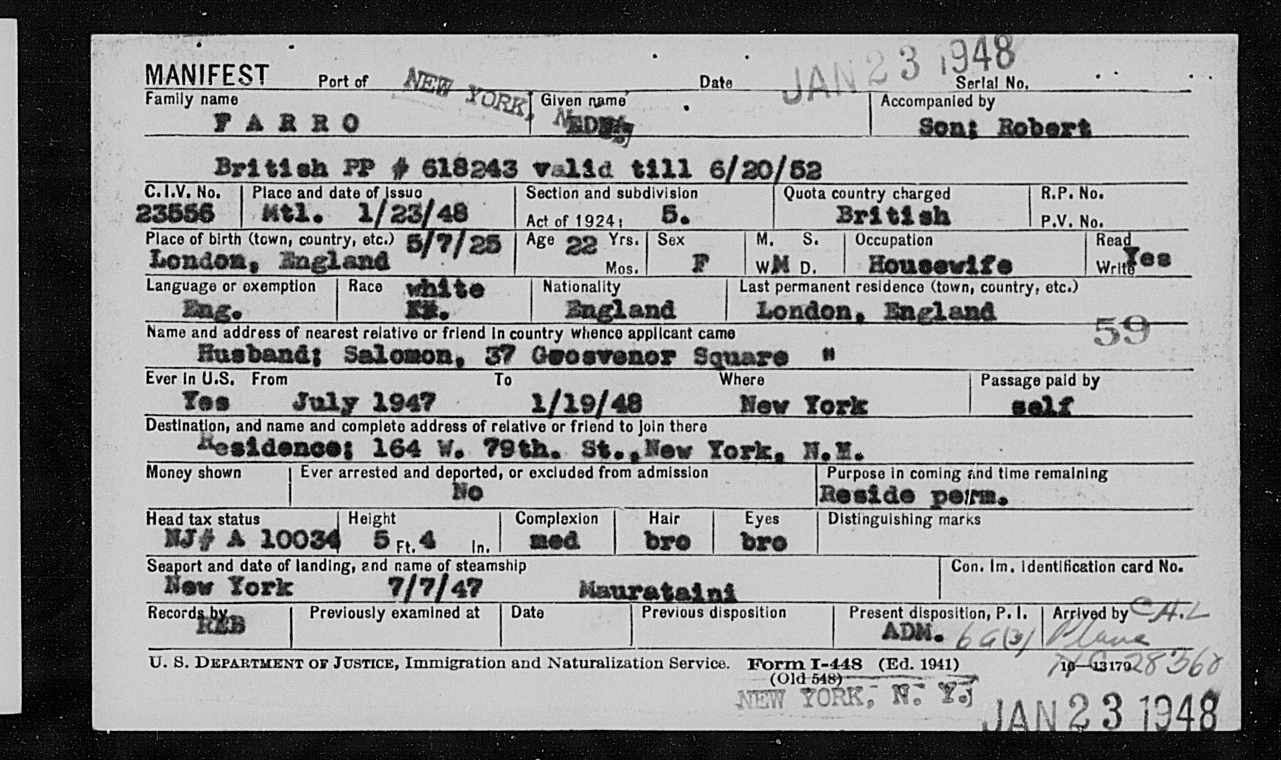 JAN 23 1948
MANIFEST Port of NEW YORK, Date Serial No.
Family name Given name Accompanied by
FARRO Son; Robert
British PP # 618243 valid till 6/20/52
C.I.V. No. Place and date of issue Section and subdivision Quota country charged R.P. No.
23556 Mtl. 1/23/48 Act of 1924; 5. British P.V. No.
Place of birth (town, country, etc.) 5/7/25 Age 22 Yrs. Sex M. S. Occupation Read
London, England Mos. F W M D. Housewife Write Yes
Language or exemption Race white Nationality Last permanent residence (town, country, etc.)
Eng. England London, England
59
Name and address of nearest relative or friend in country whence applicant came
Husband; Salomon, 37 Grosvenor Square "
Ever in U.S. From To Where Passage paid by
Yes July 1947 1/19/48 New York self
Destination, and name and complete address of relative or friend to join there
Residence; 164 W. 79th. St., New York, N.Y.
Money shown Ever arrested and deported, or excluded from admission Purpose in coming and time remaining
No Reside perm.
Head tax status Height Complexion Hair Eyes Distinguishing marks
NJ# A 10034 5 Ft. 4 In. med bro bro
Seaport and date of landing, and name of steamship Con. Im. Identification card No.
New York 7/7/47 Maurataini
Records by Previously examined at Date Previous disposition Present disposition, P. I. Arrived by
REB ADM. 6a(3) Plane
U. S. DEPARTMENT OF JUSTICE, Immigration and Naturalization Service. Form I-448 (Ed. 1941) 16—13179
(Old 548)
NEW YORK, N. Y.
JAN 23 1948